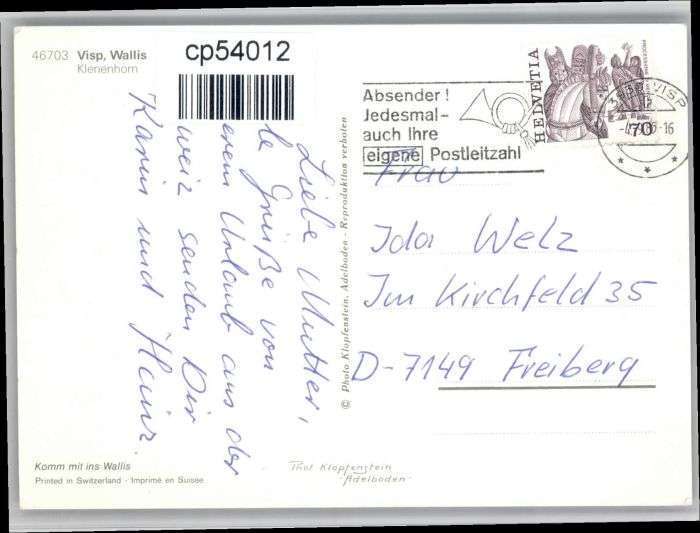 46703 Visp, Wallis
Klenenhorn
cp54012
Liebe Mutter,
le Grüße von
erem Urlaub aus der
weiz senden Dir
Karin und Heinz.
© Photo Klopfenstein, Adelboden - Reproduktion verboten
Absender!
Jedesmal-
auch Ihre
eigene Postleitzahl
HELVETIA
70
VISP
Frau
Ida Welz
Im Kirchfeld 35
D-7149 Freiberg
Komm mit ins Wallis
Printed in Switzerland · Imprimé en Suisse
Phot Klopfenstein
"Adelboden"